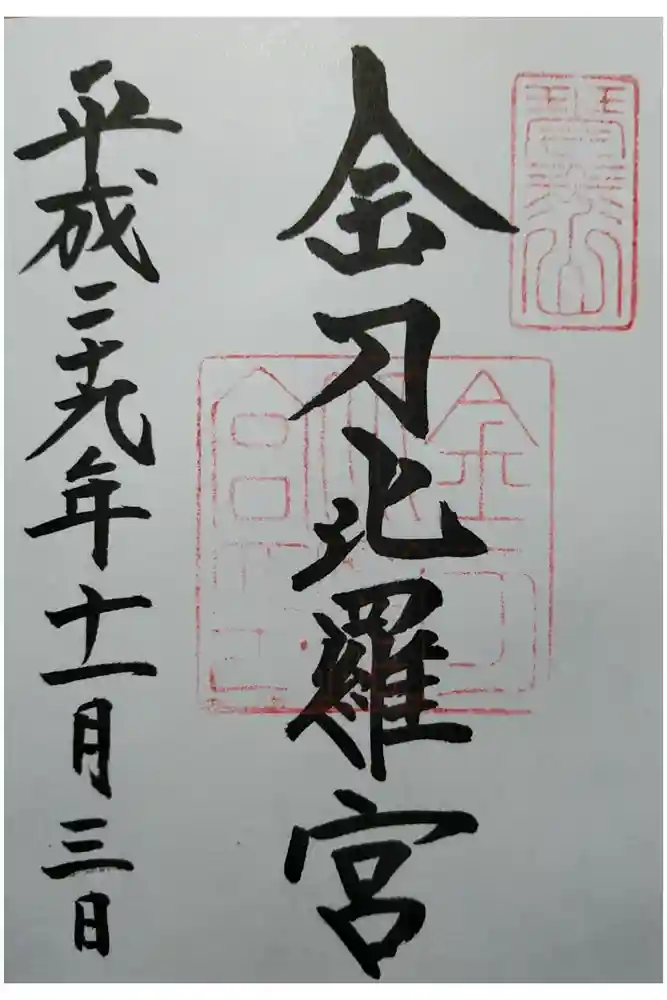 琴平山
金刀比羅宮
平成二十九年十一月三日